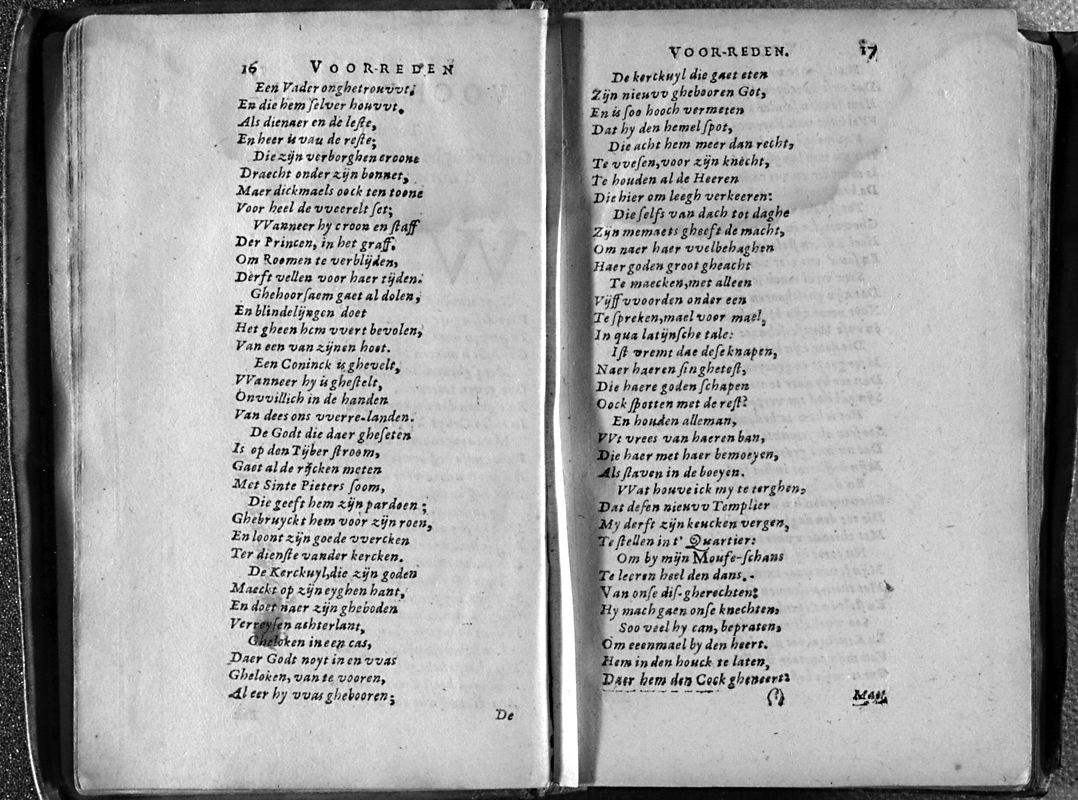 16 VOOR-REDEN
Een Vader onghetrouvvt;
En die hem ſelver houvvt.
Als dienaer en de leſte,
En heer is vau de reſte;
Die zijn verborghen croone
Draecht onder zijn bonnet,
Maer dickmaels oock ten toone
Voor heel de vveerelt ſet;
VVanneer hy croon en ſtaff
Der Princen, in het graff.
Om Roomen te verblijden,
Derft vellen voor haer tijden.
Ghehoorſaem gaet al dolen,
En blindelijngen doet
Het gheen hem vvert bevolen,
Van een van zijnen hoet.
Een Coninck is ghevelt,
VVanneer hy is gheſtelt,
Onvvillich in de handen
Van dees ons vverre-landen.
De Godt die daer gheſeten
Is op den Tijber ſtroom,
Gaet al de rijcken meten
Met Sinte Pieters ſoom,
Die geeft hem zijn pardoen;
Ghebruyckt hem voor zijn roen,
En loont zijn goede vvercken
Ter dienſte vander kercken.
De Kerckuyl, die zijn goden
Maeckt op zijn eyghen hant,
En doet naer zijn gheboden
Verreyſen achterlant,
Gheloken in een cas,
Daer Godt noyt in en vvas
Gheloken, van te vooren,
Al eer hy vvas ghebooren;
De
VOOR-REDEN. 17
De kerckuyl die gaet eten
Zijn nieuvv ghebooren Got,
En is ſoo hooch vermeten
Dat hy den hemel ſpot,
Die acht hem meer dan recht,
Te vveſen, voor zijn knecht,
Te houden al de Heeren
Die hier om leegh verkeeren:
Die ſelfs van dach tot daghe
Zijn memaets gheeft de macht,
Om naer haer vvelbehaghen
Haer goden groot gheacht
Te maecken, met alleen
Vijff vvoorden onder een
Te ſpreken, mael voor mael,
In qua latijnſche tale:
Iſt vremt dae deſe knapen,
Naer haeren ſin gheteſt,
Die haere goden ſchapen
Oock ſpotten met de reſt?
En houden alleman,
VVt vrees van haeren ban,
Die haer met haer bemoeyen,
Als ſlaven in de boeyen.
VVat houve ick my te terghen,
Dat deſen nieuvv Templier
My derft zijn keucken vergen,
Te ſtellen in t' Quartier:
Om by mijn Mouſe-ſchans
Te leeren heel den dans.
Van onſe diſ-gherechten:
Hy mach gaen onſe knechten,
Soo veel hy can, bepraten,
Om eeenmael by den heert.
Hem in den houck te laten,
Daer hem den Cock gheneert:
(.) Maer